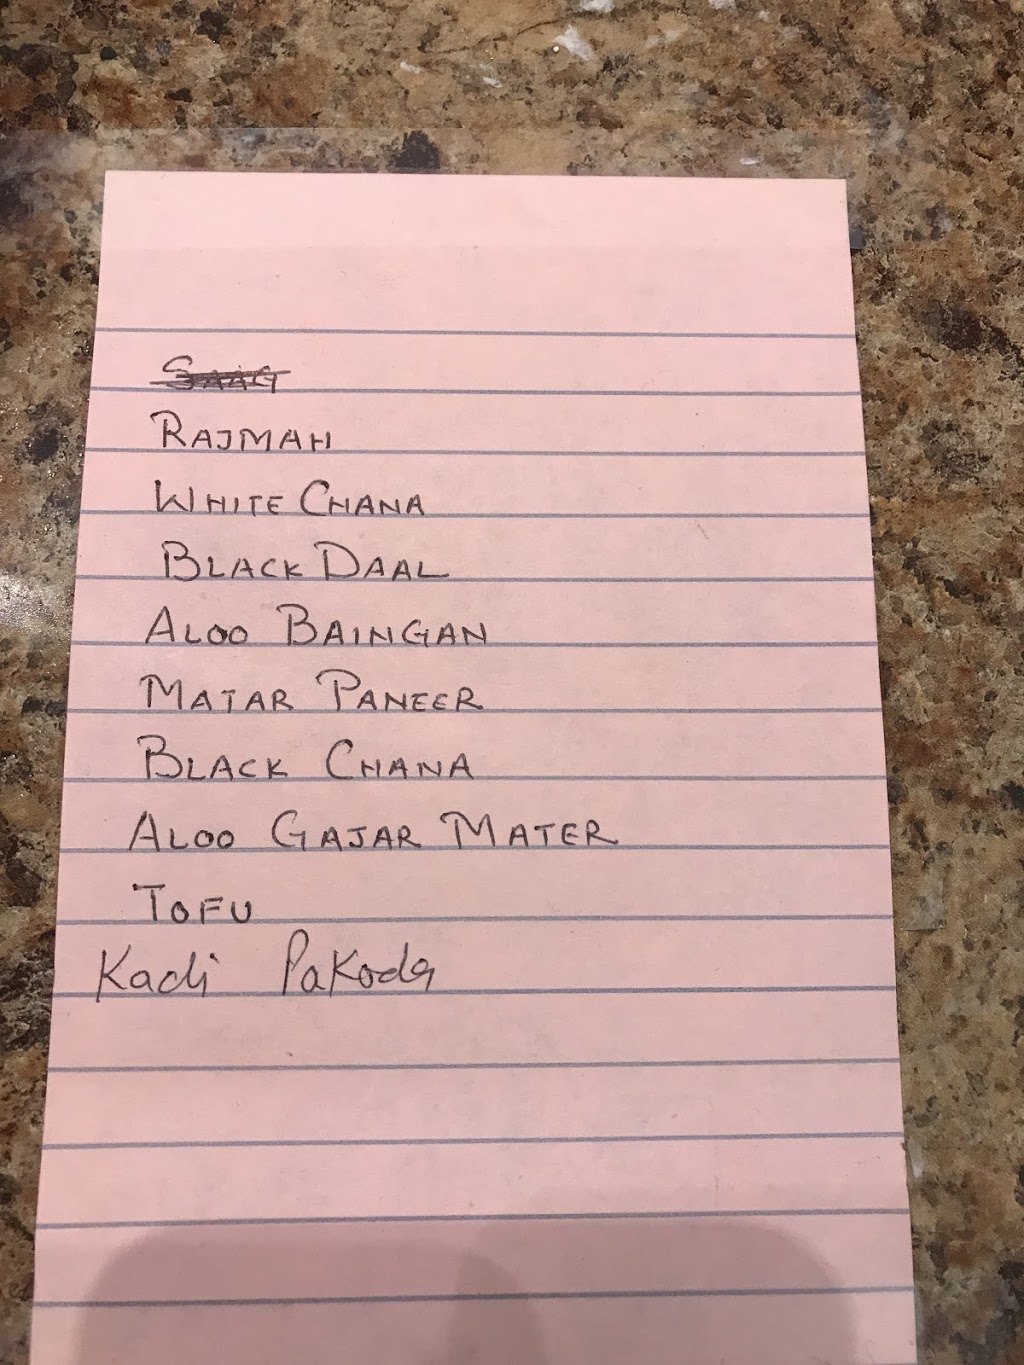 SAAG
RAJMAH
WHITE CHANA
BLACK DAAL
ALOO BAINGAN
MATAR PANEER
BLACK CHANA
ALOO GAJAR MATER
TOFU
Kadi Pakoda